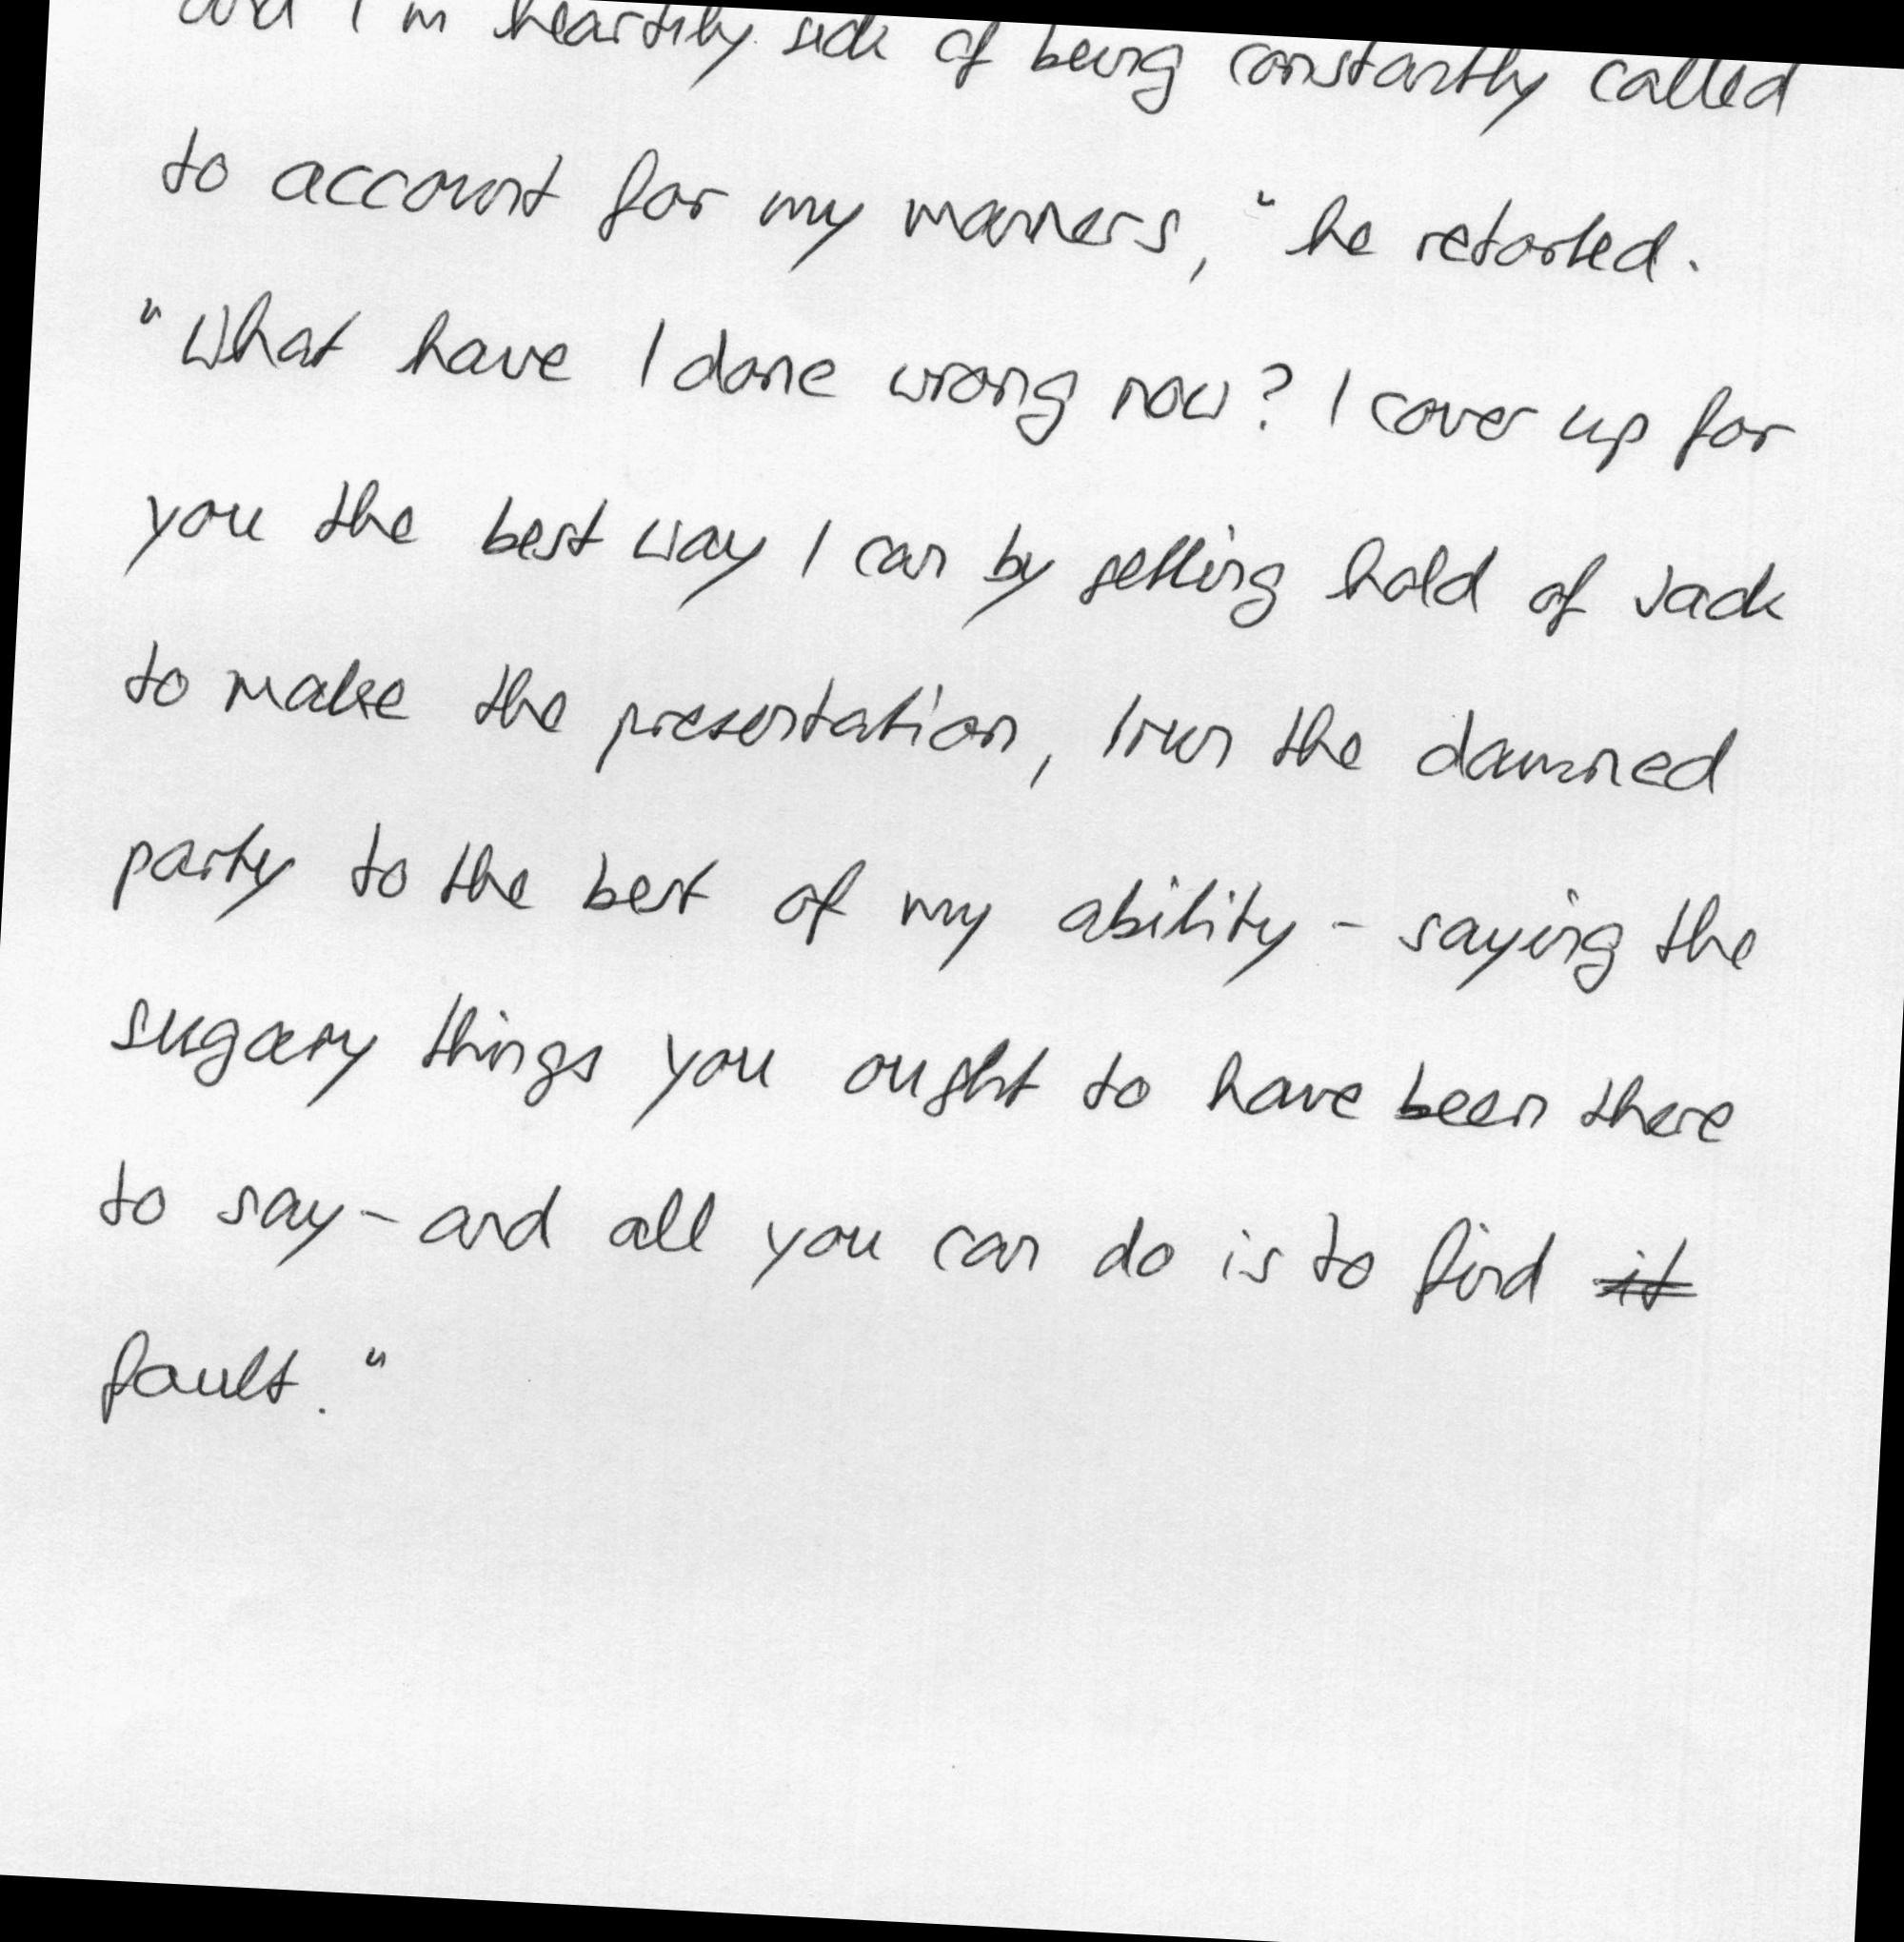 and I'm heartily sick of being constantly called
to account for my manners," he retorted.
"What have I done wrong now? I cover up for
you the best way I can by getting hold of Jack
to make the presentation, I run the damned
party to the best of my ability - saying the
sugary things you ought to have been there
to say - and all you can do is to find it
fault."